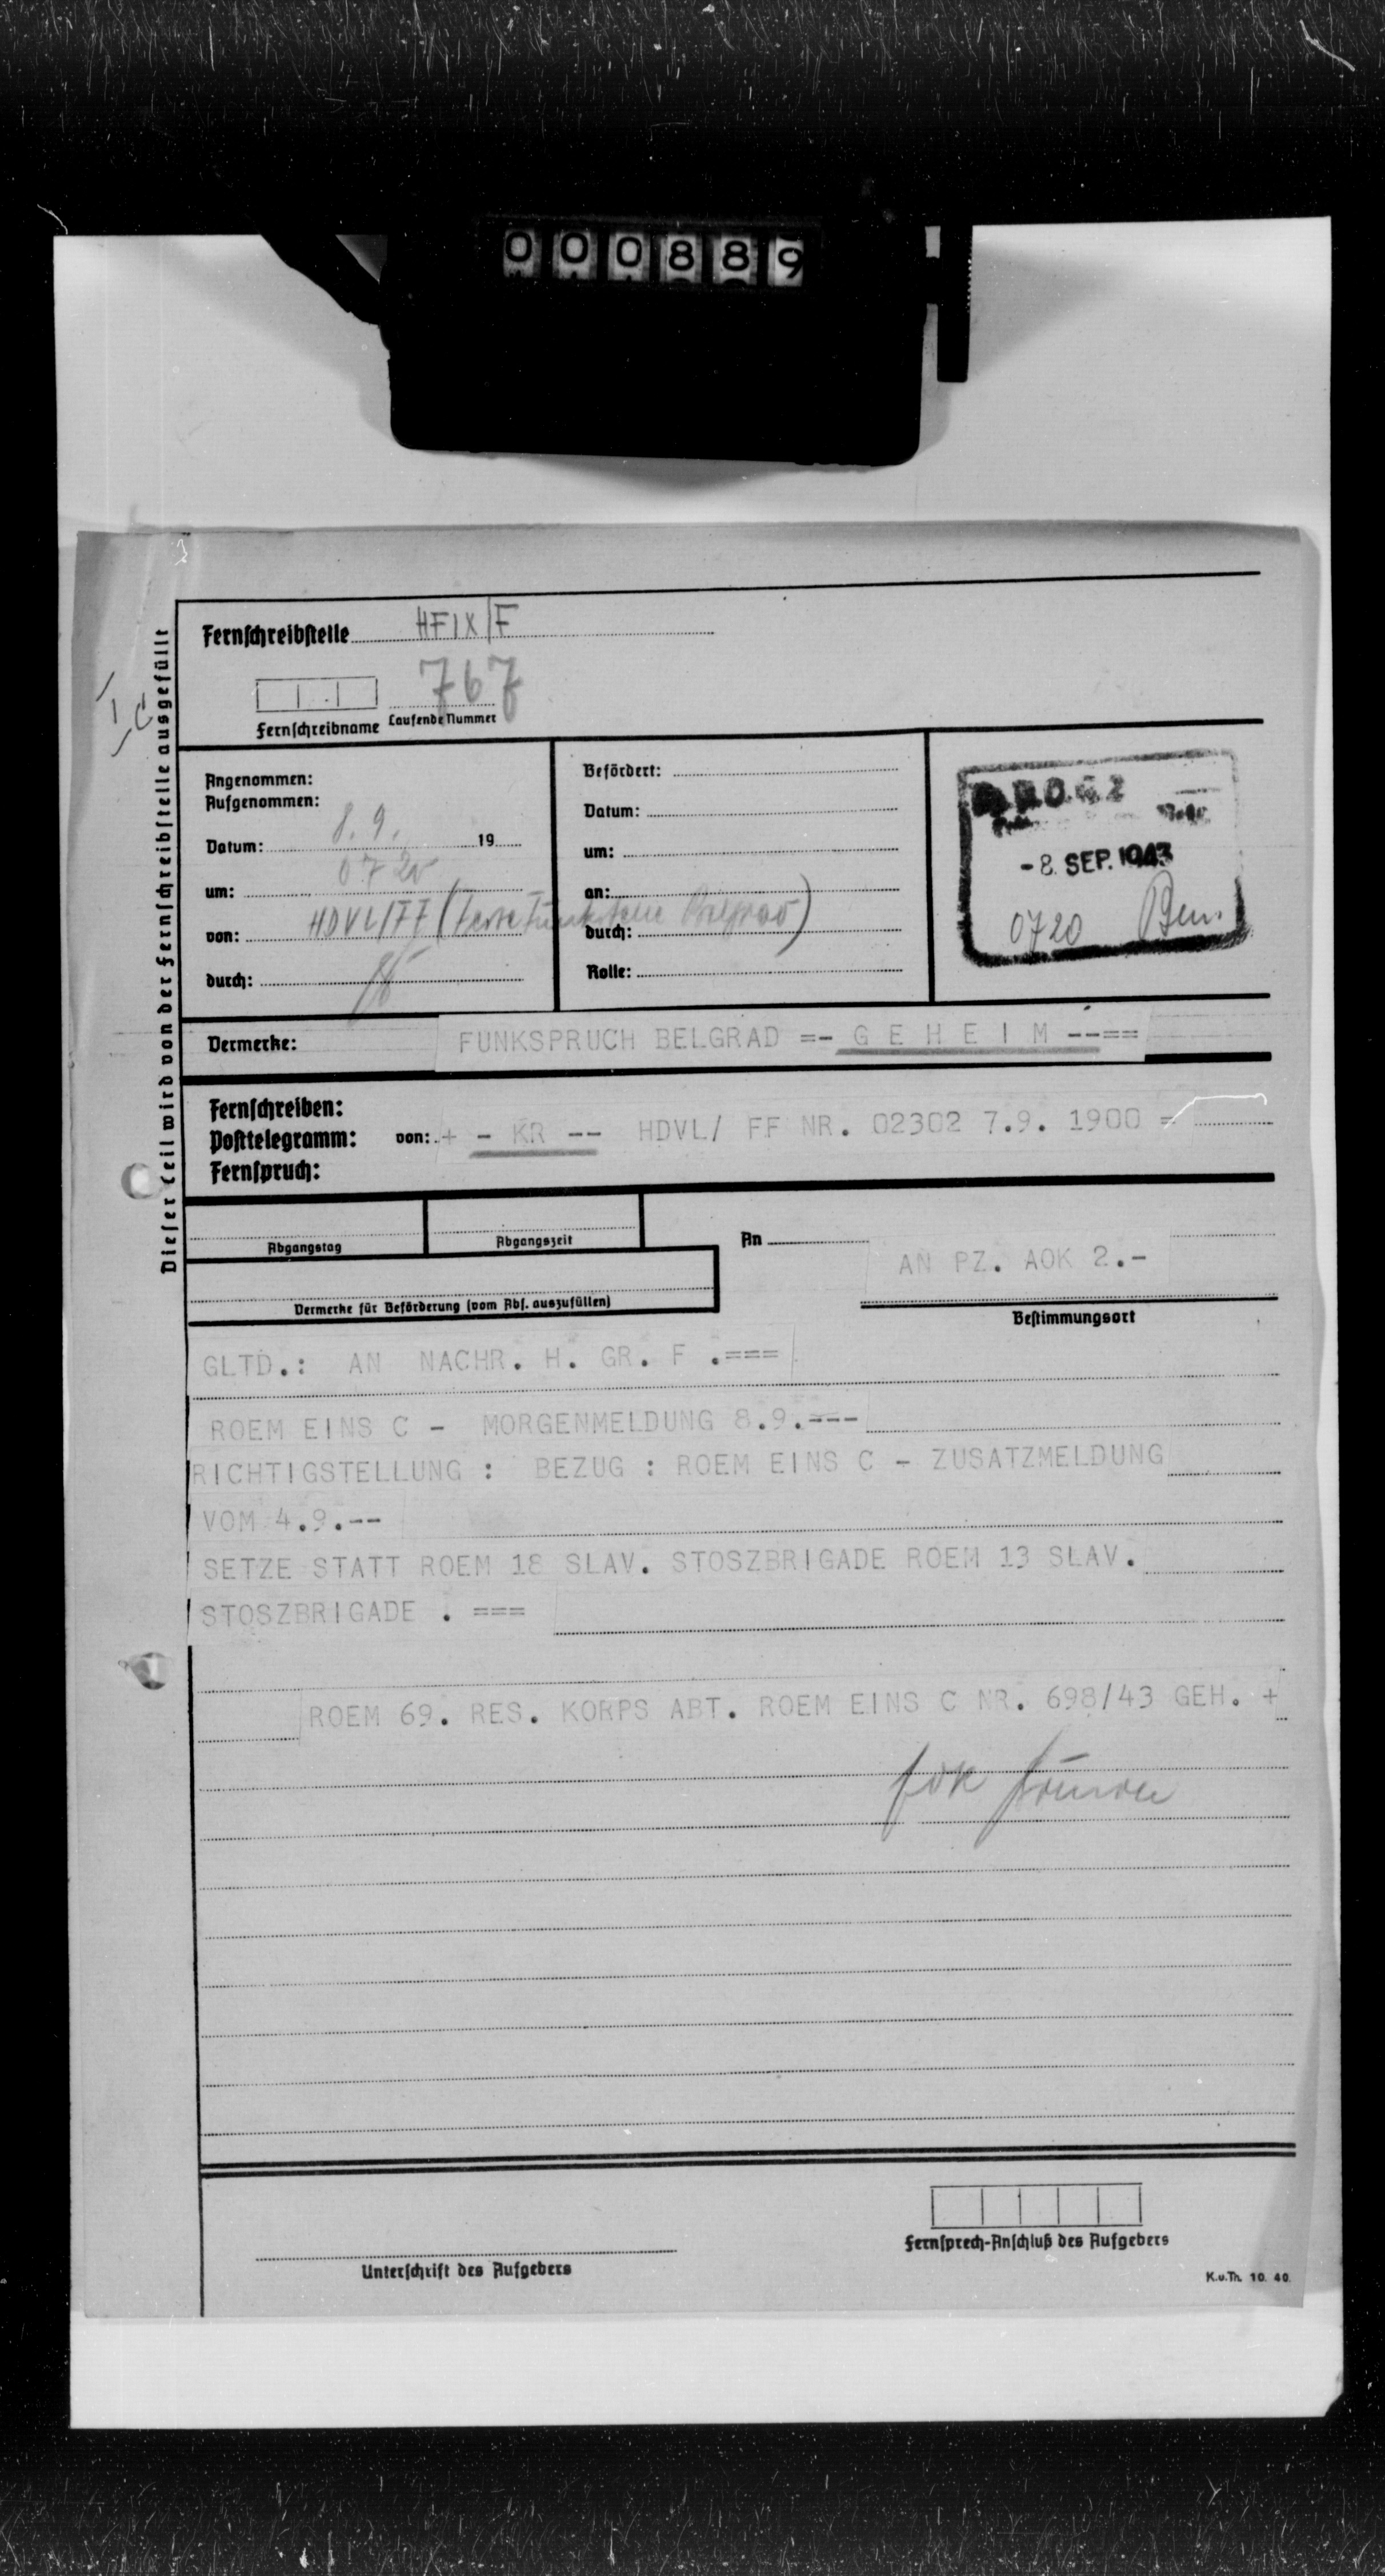 000889
Dieser Teil wird von der Fernschreibstelle ausgefüllt
I c
Fernschreibstelle HFIX/F
767
Fernschreibname Laufende Nummer
Angenommen:
Aufgenommen:
Datum: 8.9. 19
um: 0720
von: HDVL/FF (Feste Funkstelle Belgrad)
durch:
Befördert:
Datum:
um:
an:
durch:
Rolle:
-8. SEP. 1943
0720
Vermerke: FUNKSPRUCH BELGRAD =- G E H E I M --==
Fernschreiben:
Posttelegramm: von: + - KR -- HDVL/ FF NR. 02302 7.9. 1900 =
Fernspruch:
Abgangstag Abgangszeit An
AN PZ. AOK 2.-
Vermerke für Beförderung (vom Abs. auszufüllen)
Bestimmungsort
GLTD.: AN NACHR. H. GR. F .===
ROEM EINS C - MORGENMELDUNG 8.9.---
RICHTIGSTELLUNG : BEZUG : ROEM EINS C - ZUSATZMELDUNG
VOM 4.9.--
SETZE STATT ROEM 18 SLAV. STOSZBRIGADE ROEM 13 SLAV.
STOSZBRIGADE . ===
ROEM 69. RES. KORPS ABT. ROEM EINS C NR. 698/43 GEH. +
Unterschrift des Aufgebers
Fernsprech-Anschluß des Aufgebers
K.v.Th. 10. 40.